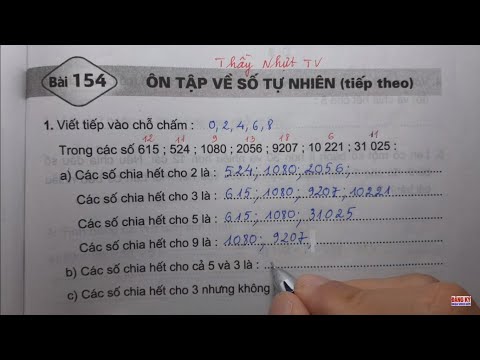 Thầy Nhựt TV
Bài 154 ÔN TẬP VỀ SỐ TỰ NHIÊN (tiếp theo)
1. Viết tiếp vào chỗ chấm : 0, 2, 4, 6, 8
12 11 9 13 18 6 11
Trong các số 615 ; 524 ; 1080 ; 2056 ; 9207 ; 10 221 ; 31 025 :
a) Các số chia hết cho 2 là : 524; 1080; 2056;
Các số chia hết cho 3 là : 615; 1080; 9207; 10221
Các số chia hết cho 5 là : 615; 1080; 31025
Các số chia hết cho 9 là : 1080; 9207
b) Các số chia hết cho cả 5 và 3 là : ...
c) Các số chia hết cho 3 nhưng không
ĐĂNG KÝ